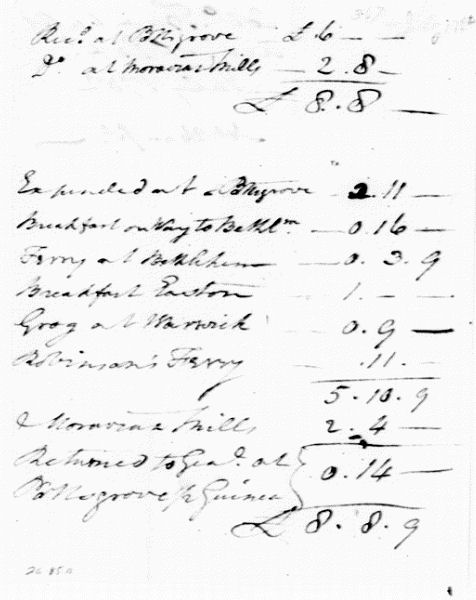 Recd at Pittsgrove £ 6 — —
Do at Moravian Mills — 2 . 8 —
£ 8 . 8 —
Expended at Pittsgrove — 2 . 11 —
Breakfast on Way to Bethlm — 0 . 16 —
Ferry at Bethlehem — 0 . 3 . 9
Breakfast Easton — 1 . — —
Grog at Warwick — 0 . 9 —
Robinson's Ferry — . 11 . —
5 . 10 . 9
& Moravian Mills 2 . 4 —
Returned to Genl. at } 0 . 14 —
Guinea
£ 8 . 8 . 9